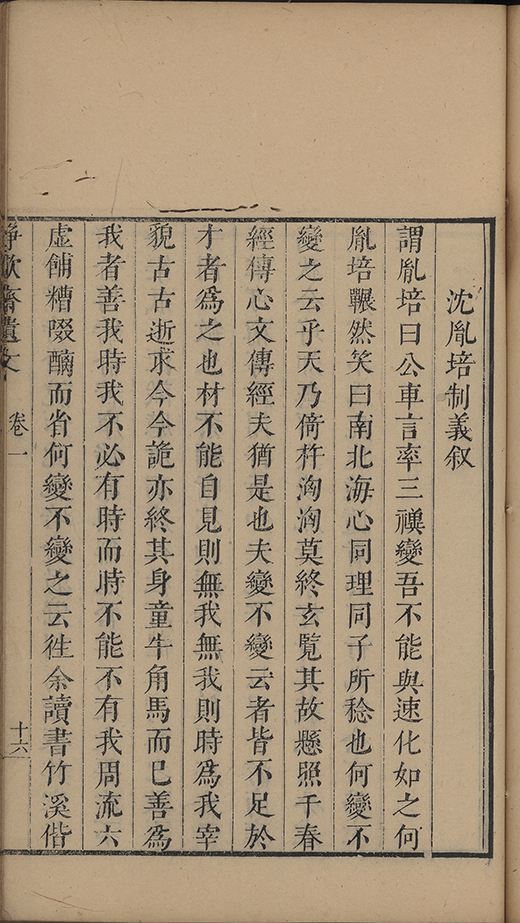 沈胤培制義叙
謂胤培曰公車言率三禩變吾不能與速化如之何
胤培冁然笑曰南北海心同理同子所稔也何變不
變之云乎天乃倚杵洶洶莫終玄覽其故懸照千春
經傳心文傳經夫猶是也夫變不變云者皆不足於
才者為之也材不能自見則無我無我則時為我宰
貌古古逝求今今詭亦終其身童牛角馬而已善為
我者善我時我不必有時而時不能不有我周流六
虛餔糟啜醨而省何變不變之云徃余讀書竹溪偕
齋遺文 卷一 十六